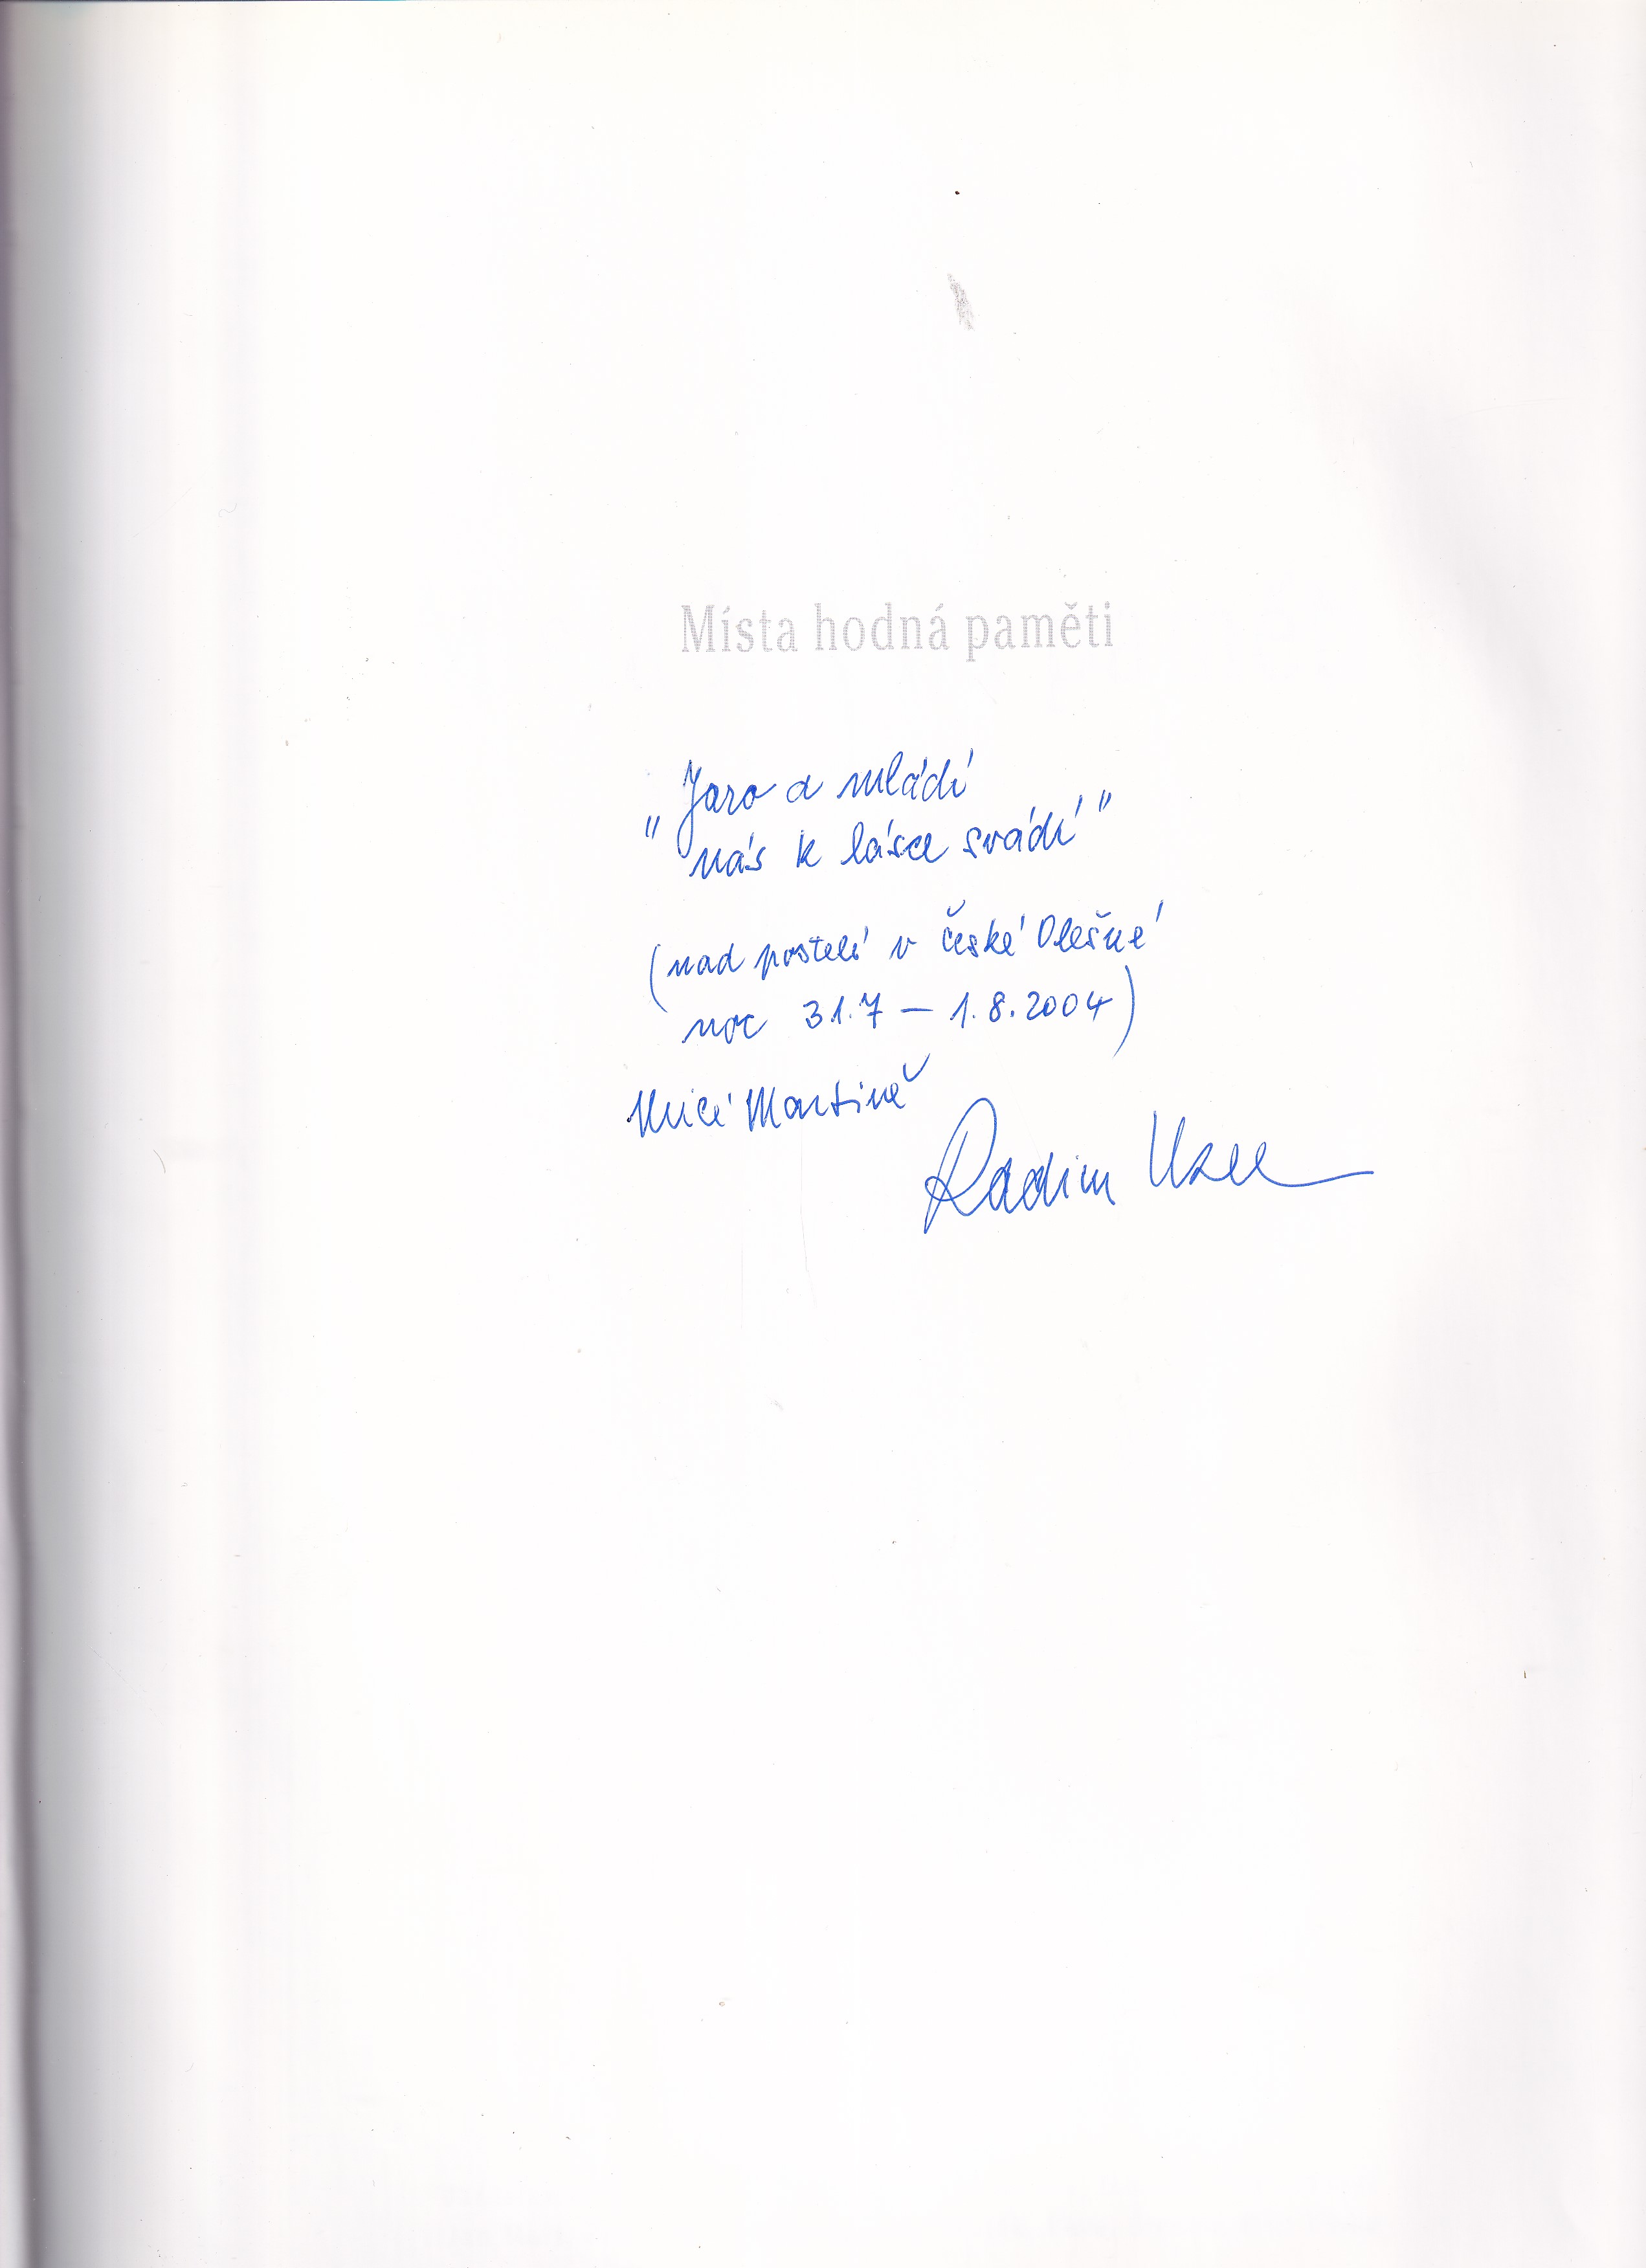 Místa hodná paměti
"Jaro a mládí
nás k lásce svádí"
(nad postelí v České Olešné
noc 31.7 – 1.8.2004)
Martině
Radim Uzel